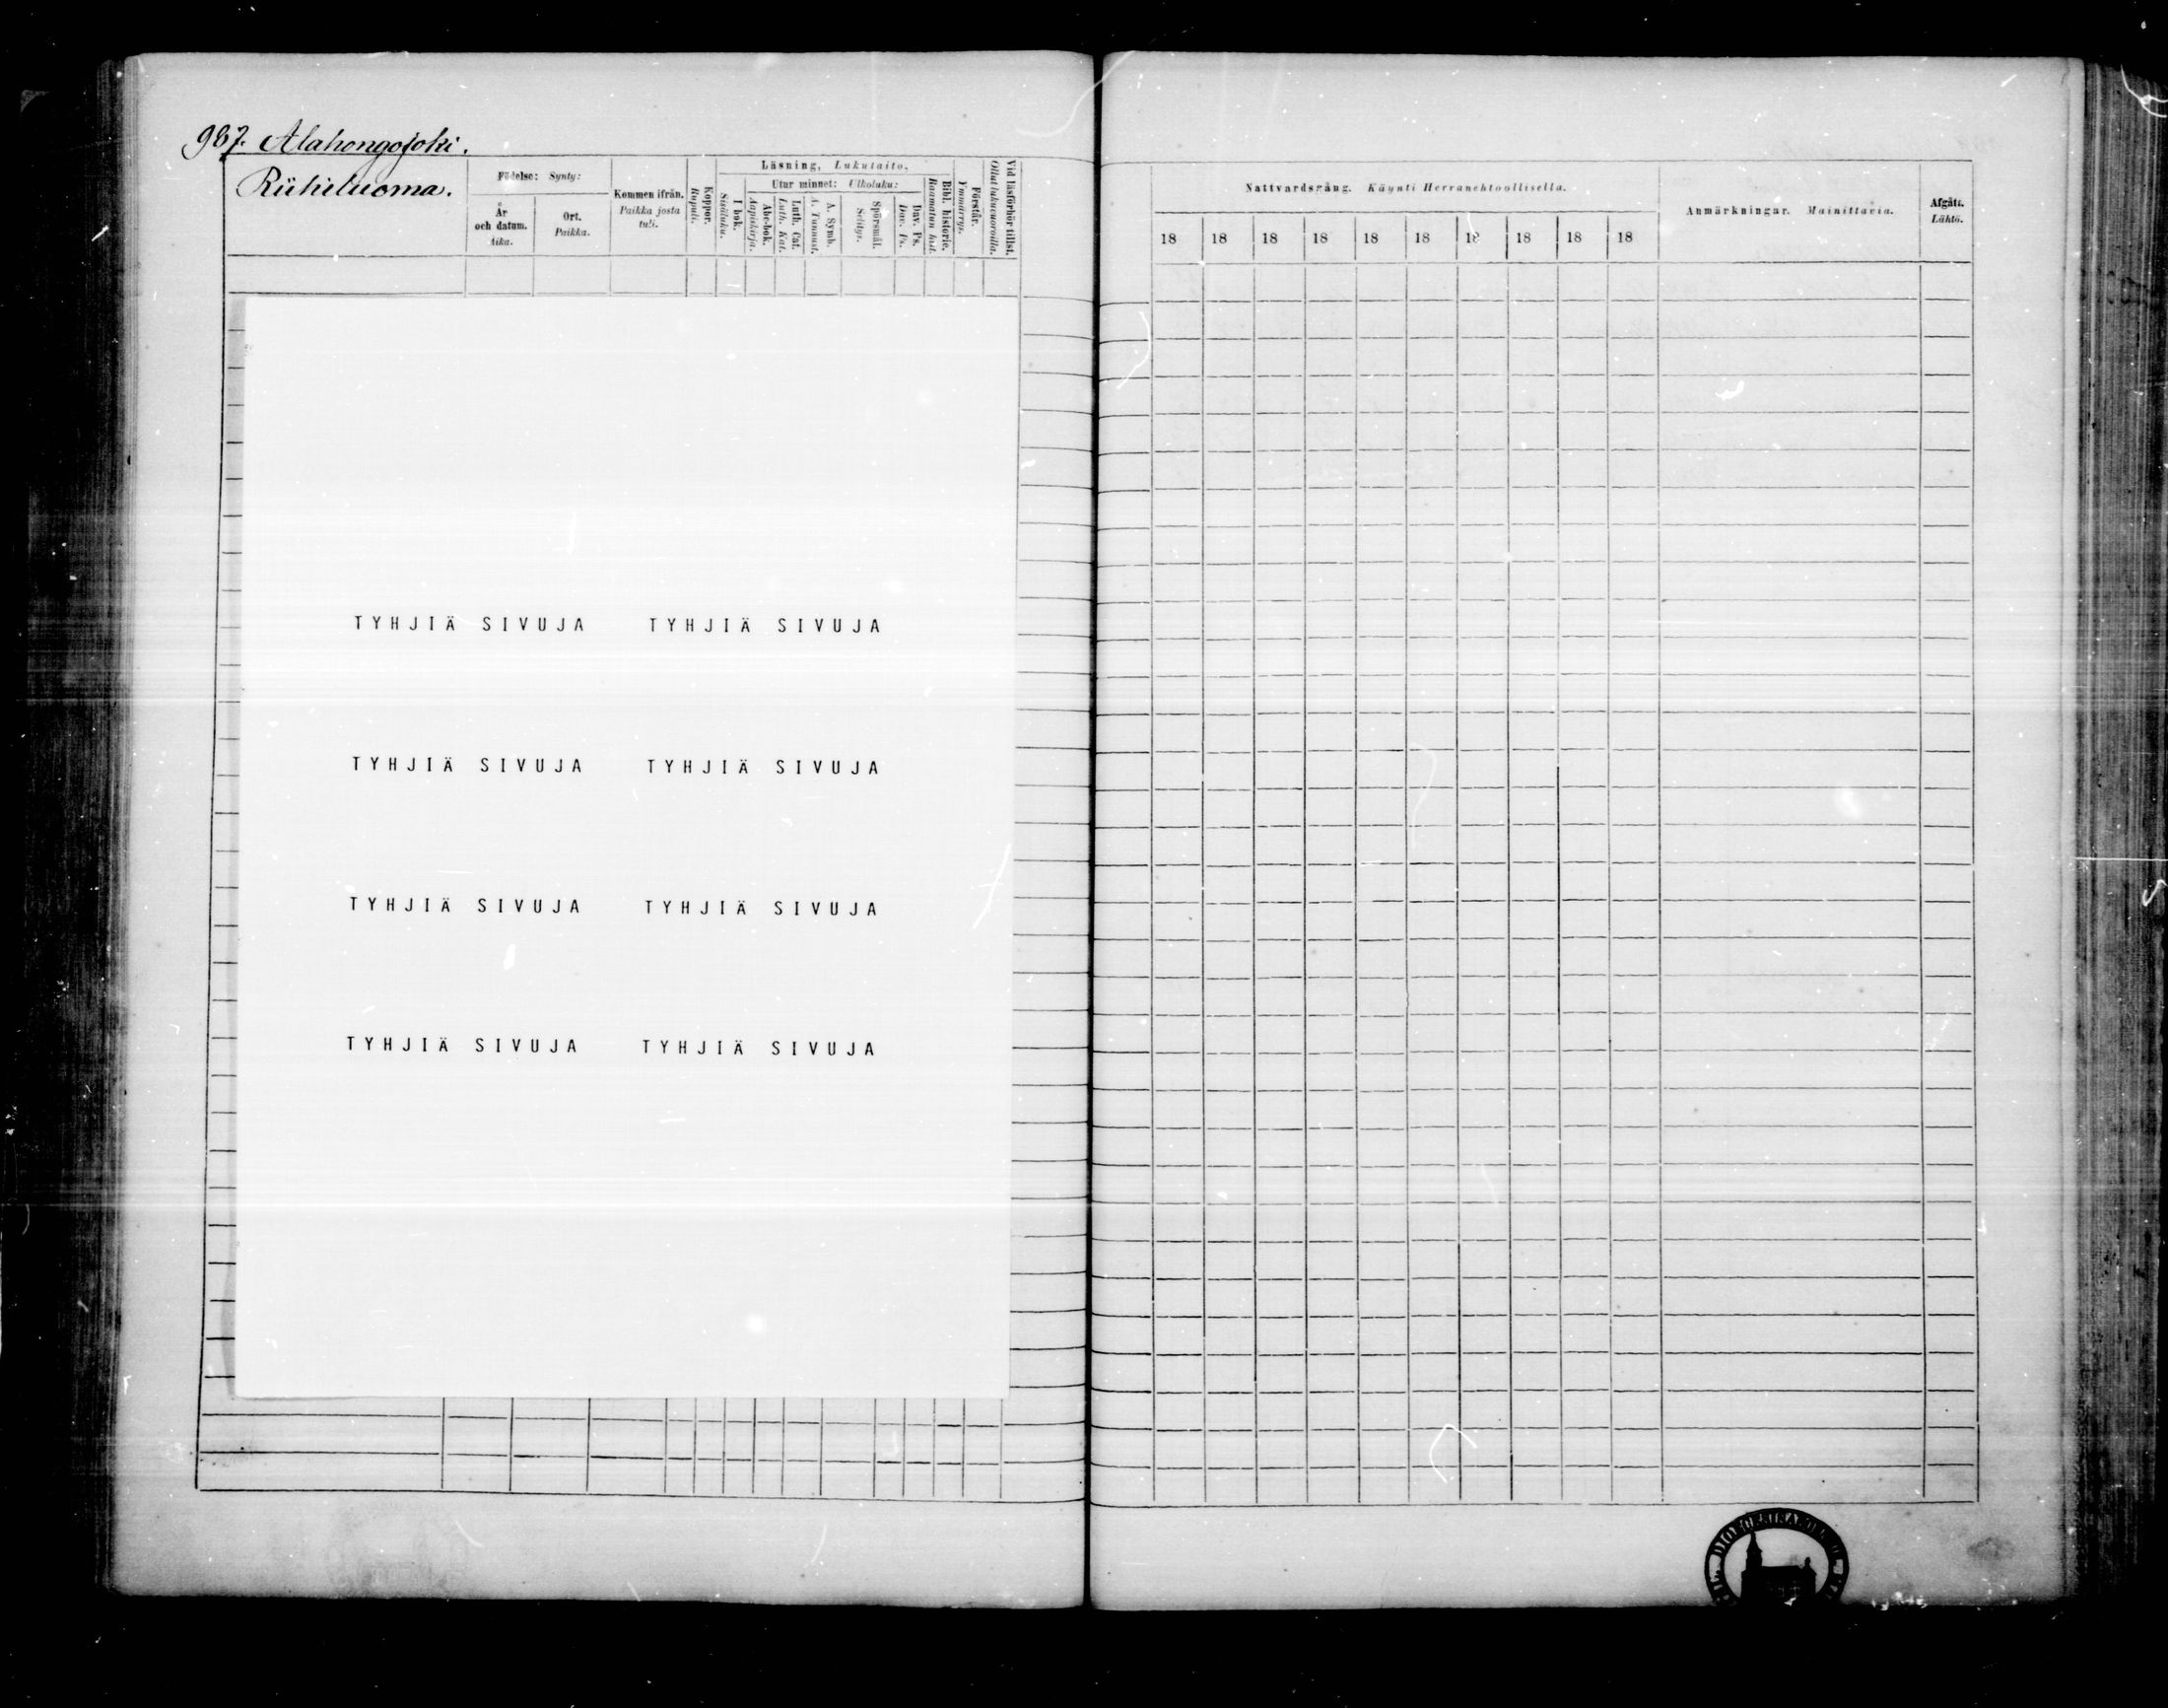 987. Alahongojoki.
Riihiluoma.
Födelse: Synty:
År och datum. Aika.
Ort. Paikka.
Kommen ifrån. Paikka josta tuli.
Koppor. Rupuli.
Läsning, Lukutaito.
I bok. Sisäluku.
Utur minnet: Ulkoluku:
Abc-bok. Aapiskirja.
Luth. Cat. Luth. Kat.
A. Symb. A. Tunnust.
Spörsmål. Selitys.
Dav. Ps. Dav. Ps.
Bibl. historie. Raamatun hist.
Förstår. Ymmärrys.
Vid läsförhör tillst. Ollut lukuvuoroilla.
Nattvardsgång. Käynti Herranehtoollisella.
18 18 18 18 18 18 18 18 18 18
Anmärkningar. Mainittavia.
Afgått. Lähtö.
TYHJIÄ SIVUJA TYHJIÄ SIVUJA
TYHJIÄ SIVUJA TYHJIÄ SIVUJA
TYHJIÄ SIVUJA TYHJIÄ SIVUJA
TYHJIÄ SIVUJA TYHJIÄ SIVUJA